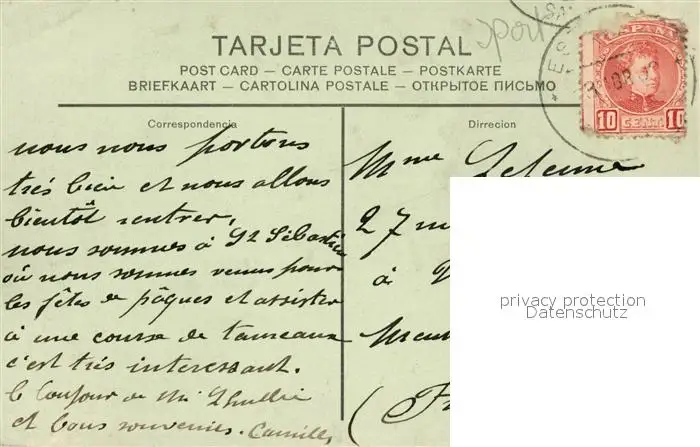 TARJETA POSTAL
POST CARD — CARTE POSTALE — POSTKARTE
BRIEFKAART — CARTOLINA POSTALE — ОТКРЫТОЕ ПИСЬМО
ESPAÑA
10 CENT. 10
Correspondencia
nous nous portons
très bien et nous allons
bientôt rentrer,
nous sommes à St Sébastien
où nous sommes venus pour
les fêtes de pâques et assister
à une course de taureaux
c'est très interessant.
le bonjour de Mr
et bons souvenirs. Camille
Direccion
Mme Lejeune
27
à
privacy protection
Datenschutz